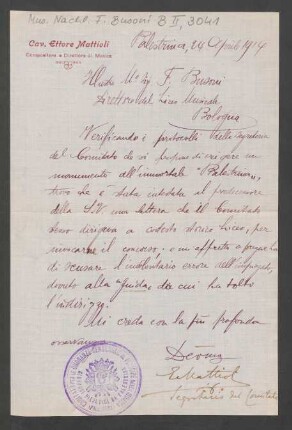 Mus. Nachl. F. Busoni B II, 3041
Cav. Ettore Mattioli
Compositore e Direttore di Musica
Palestrina, 24 Aprile 1914
Illustre Mº Sig. F. Busoni
Direttore del Liceo Musicale
Bologna
Verificando i protocolli della Segreteria
del Comitato che si propone di erigere un
monumento all'immortale "Palestrina",
trovo che è stata intestata al predecessore
della S.V. una lettera che il Comitato
stesso dirigeva a codesto storico Liceo, per
invocarne il concorso; e mi affretto a pregarla
di scusare l'involontario errore dell'impiegato,
dovuto alla "Guida" da cui ha tolto
l'indirizzo.
Mi creda con la più profonda
osservanza
Devmo
E. Mattioli
Segretario del Comitato